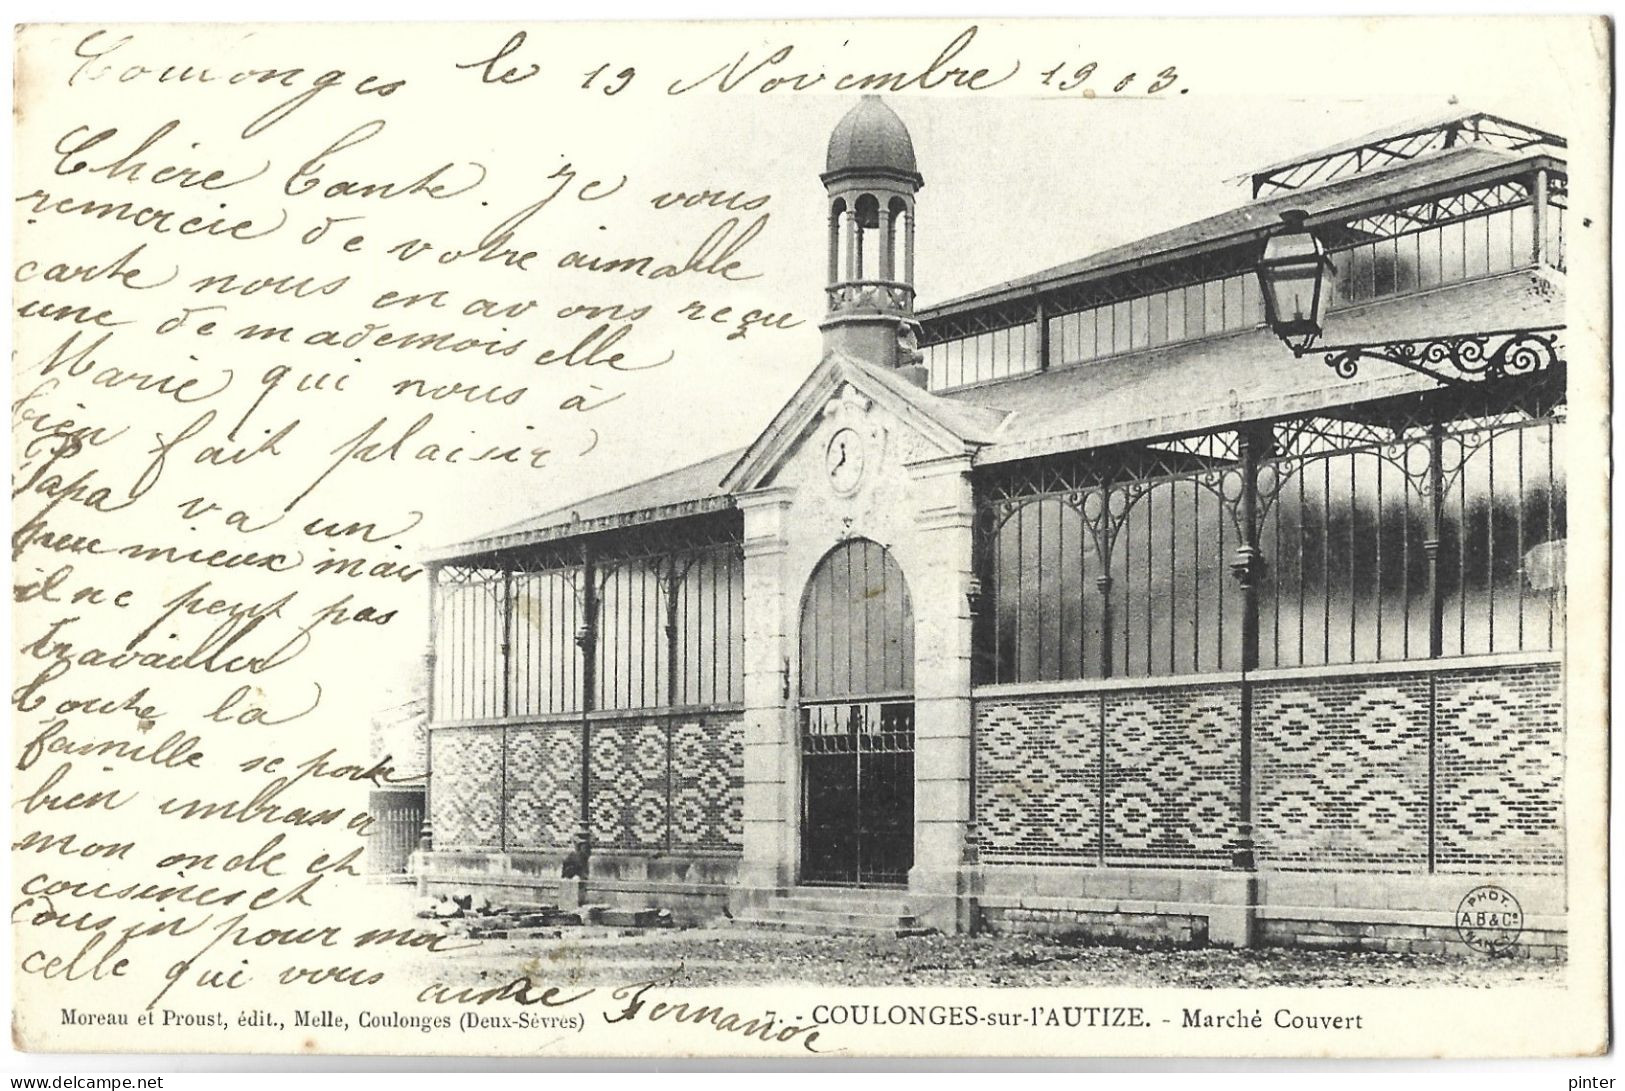 Coulonges le 19 Novembre 1903.
Chère Tante. Je vous
remercie de votre aimable
carte nous en avons reçu
une de mademoiselle
Marie qui nous à
bien fait plaisir
Papa va un
peu mieux mais
il ne peut pas
travailler
toute la
famille se porte
bien embrasser
mon oncle et
cousines et
cousin pour moi
celle qui vous aime Fernande
PHOT.
AB&Cº
NANCY
Moreau et Proust, édit., Melle, Coulonges (Deux-Sèvres)
7. - COULONGES-sur-l'AUTIZE. - Marché Couvert
delcampe.net
pinter